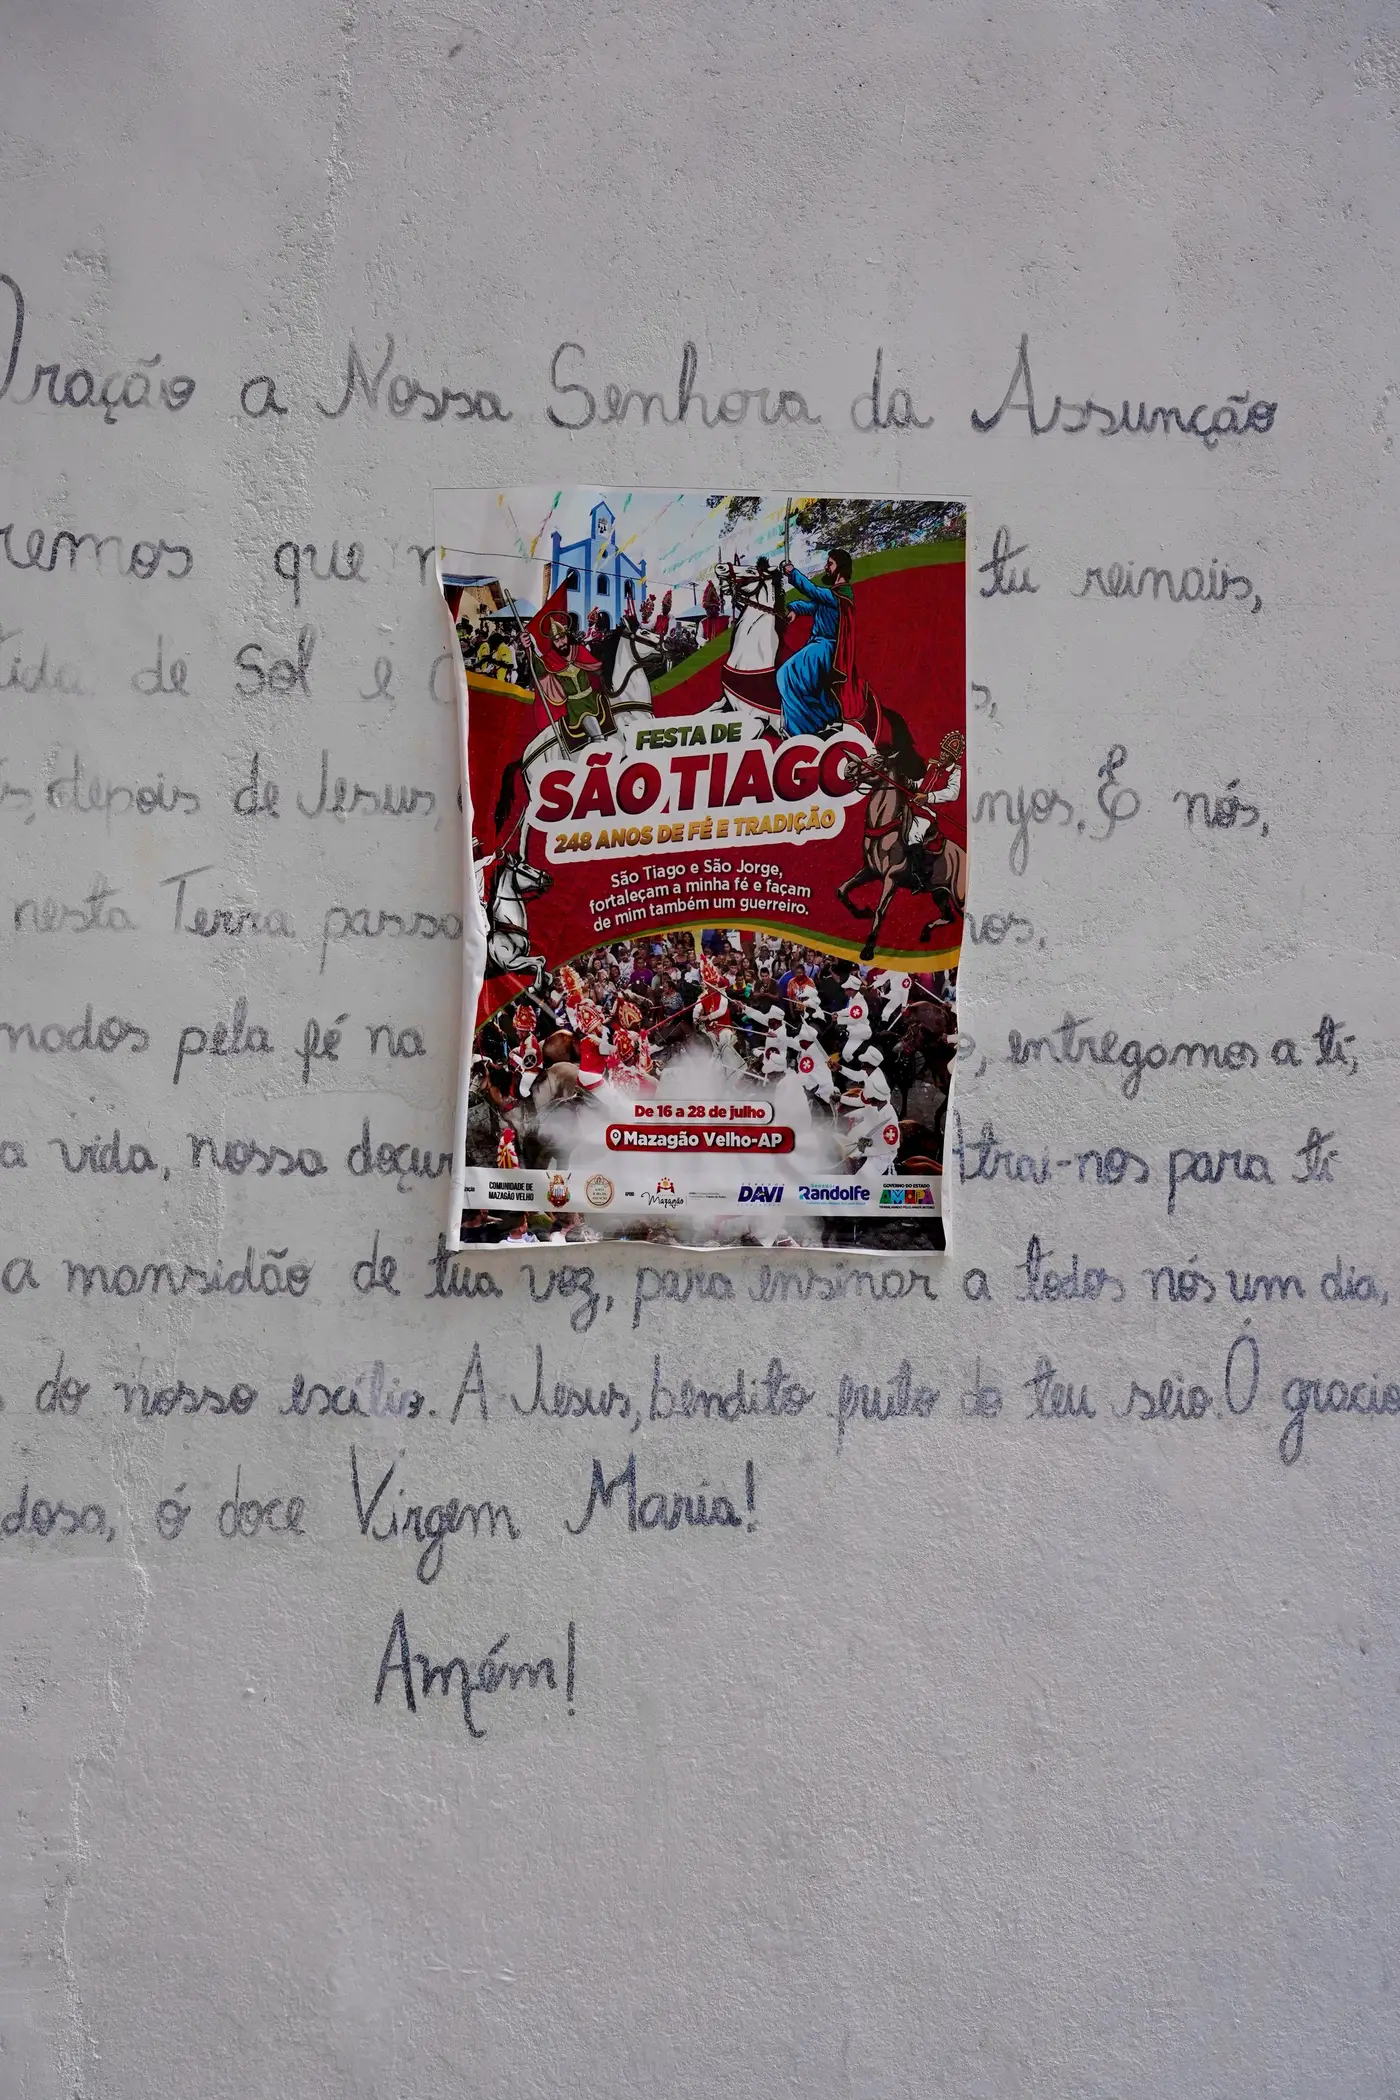 Oração a Nossa Senhora da Assunção
remos que n tu reinais,
tida de Sol e s,
s, depois de Jesus, njos. E nós,
nesta Terra passa nos,
mados pela fé na o, entregamos a ti,
a vida, nossa doçur trai-nos para ti
a mansidão de tua voz, para ensinar a todos nós um dia,
do nosso escílio. A Jesus, bendito fruto do teu seio. Ó gracio
dosa, ó doce Virgem Maria!
Amém!
FESTA DE
SÃO TIAGO
248 ANOS DE FÉ E TRADIÇÃO
São Tiago e São Jorge,
fortaleçam a minha fé e façam
de mim também um guerreiro.
De 16 a 28 de julho
Mazagão Velho-AP
COMUNIDADE DE
MAZAGÃO VELHO
APOIO
Mazagão
SENADOR
DAVI
SENADOR
Randolfe
GOVERNO DO ESTADO
AMAPÁ